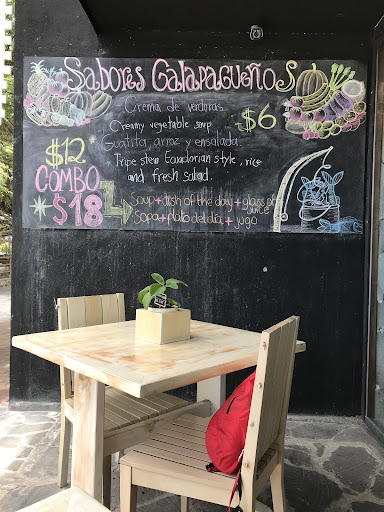 Sabores Galapagueños
Crema de verduras
Creamy vegetable soup
$6
Guatita, arroz y ensalada
$12
Tripe stew Ecuadorian style, rice
and fresh salad.
COMBO
$18
Soup + dish of the day + glass of juice
Sopa + plato del día + jugo